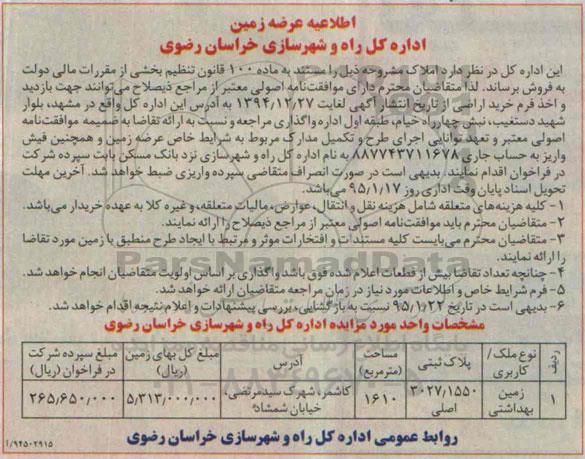 اطلاعیه عرضه زمین
اداره کل راه و شهرسازی خراسان رضوی
این اداره کل در نظر دارد املاک مشروحه ذیل را مستند به ماده ۱۰۰ قانون تنظیم بخشی از مقررات مالی دولت
به فروش برساند. لذا متقاضیان محترم دارای موافقت‌نامه اصولی معتبر از مراجع ذیصلاح می‌توانند جهت بازدید
و اخذ فرم خرید اراضی از تاریخ انتشار آگهی لغایت ۱۳۹۴/۱۲/۲۷ به آدرس این اداره کل واقع در مشهد، بلوار
شهید دستغیب، نبش چهارراه خیام، طبقه اول اداره واگذاری مراجعه و نسبت به ارائه تقاضا به ضمیمه موافقت‌نامه
اصولی معتبر و تعهد توانایی اجرای طرح و تکمیل مدارک مربوط به شرایط خاص عرضه زمین و همچنین فیش
واریز به حساب جاری ۸۸۷۷۴۳۷۱۱۶۷۸ به نام اداره کل راه و شهرسازی نزد بانک مسکن بابت سپرده شرکت
در فراخوان اقدام نمایند. بدیهی است در صورت انصراف متقاضی سپرده واریزی ضبط خواهد شد. آخرین مهلت
تحویل اسناد پایان وقت اداری روز ۹۵/۱/۱۷ می‌باشد.
۱- کلیه هزینه‌های متعلقه شامل هزینه نقل و انتقال، عوارض، مالیات متعلقه، و غیره کلا به عهده خریدار می‌باشد.
۲- متقاضیان محترم باید موافقت‌نامه اصولی معتبر از مراجع ذیصلاح را ارائه نمایند.
۳- متقاضیان محترم می‌بایست کلیه مستندات و افتخارات موثر و مرتبط با ایجاد طرح منطبق با زمین مورد تقاضا
را ارائه نمایند.
۴- چنانچه تعداد تقاضا بیش از قطعات اعلام شده فوق باشد واگذاری بر اساس اولویت متقاضیان انجام خواهد شد.
۵- فرم شرایط خاص و اطلاعات مورد نیاز در زمان مراجعه متقاضیان ارائه خواهد شد.
۶- بدیهی است در تاریخ ۹۵/۱/۲۲ نسبت به بازگشایی، بررسی پیشنهادات و اعلام نتیجه اقدام خواهد شد.
مشخصات واحد مورد مزایده اداره کل راه و شهرسازی خراسان رضوی
ردیف نوع ملک/ کاربری پلاک ثبتی مساحت (مترمربع) آدرس مبلغ کل بهای زمین (ریال) مبلغ سپرده شرکت در فراخوان (ریال)
۱ زمین بهداشتی ۳۰۲۷/۱۵۵۰ اصلی ۱۶۱۰ کاشمر، شهرک سیدمرتضی، خیابان شمشاد ۶ ۵/۳۱۳/۰۰۰/۰۰۰ ۲۶۵/۶۵۰/۰۰۰
روابط عمومی اداره کل راه و شهرسازی خراسان رضوی
۱/۹۴۵۰۲۹۱۵
ParsNamadData